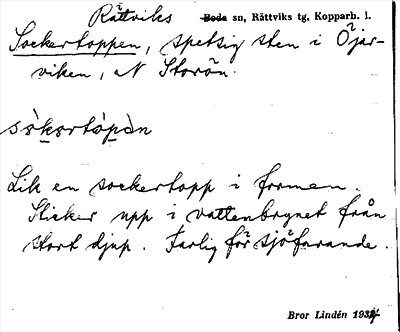 Rättviks Boda sn, Rättviks tg, Kopparb. l.
Sockertoppen, spetsig sten i Öjar-
viken, N Storön.
sòkərtòpən
Lik en sockertopp i formen.
Sticker upp i vattenbrynet från
stort djup. Farlig för sjöfarande.
Bror Lindén 1934